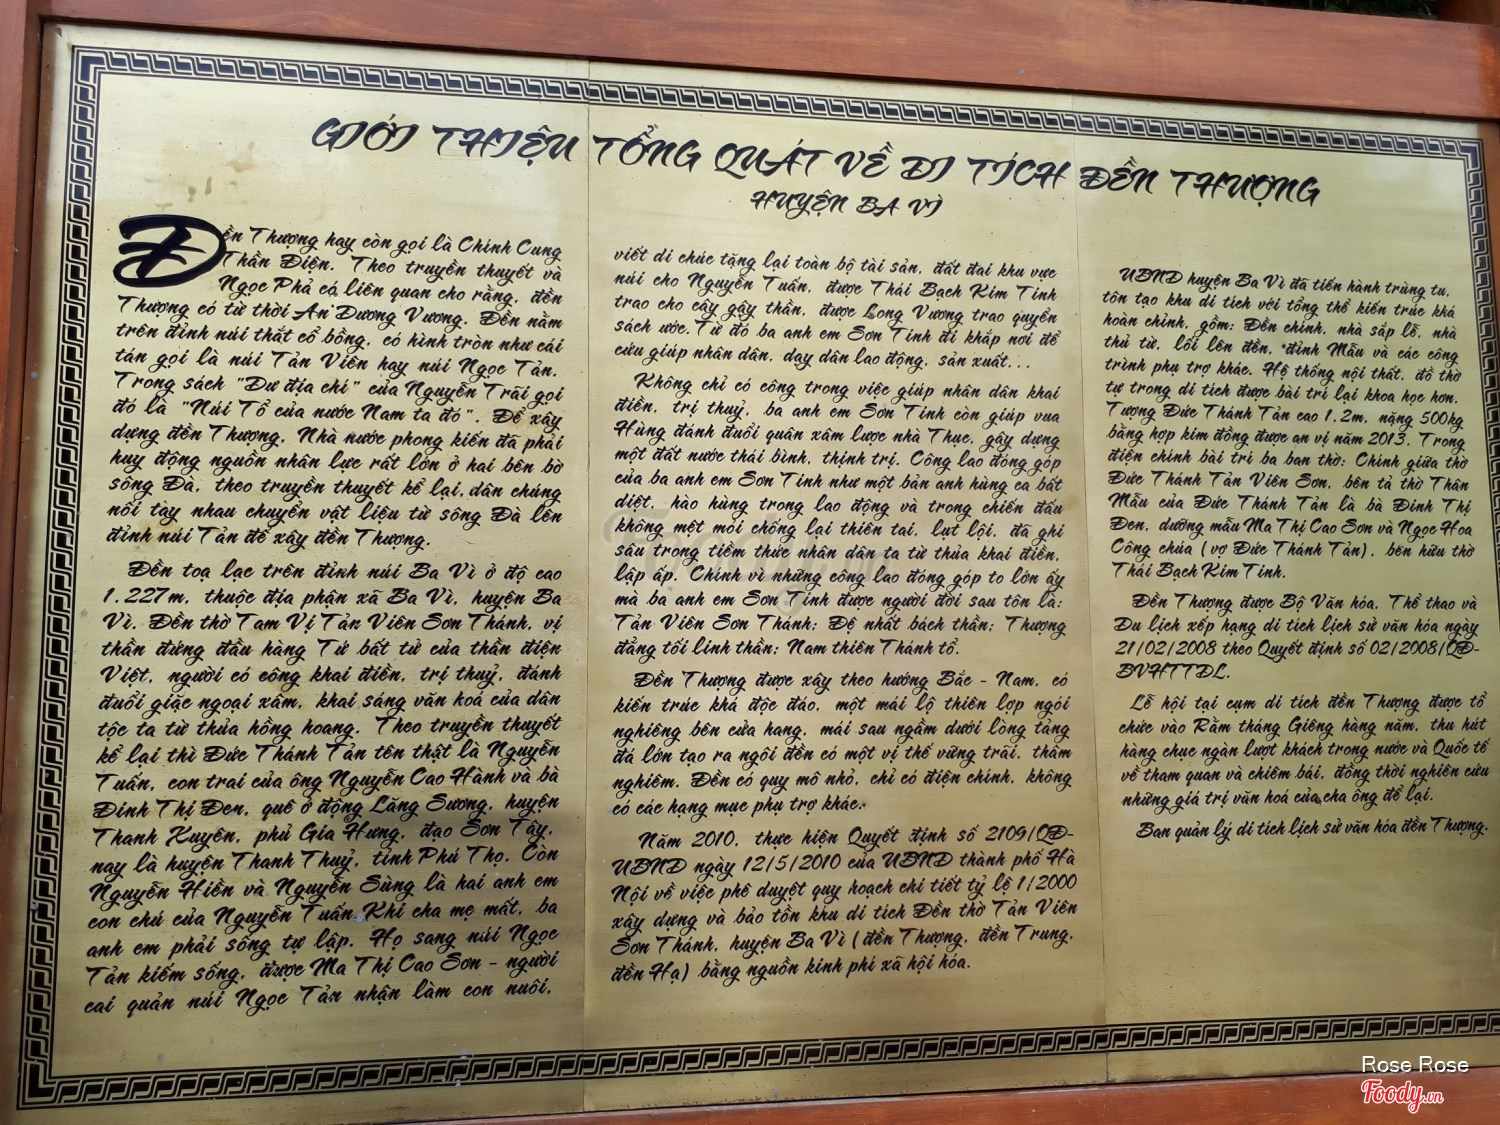 GIỚI THIỆU TỔNG QUÁT VỀ DI TÍCH ĐỀN THƯỢNG
HUYỆN BA VÌ
Đền Thượng hay còn gọi là Chính Cung
Thần Điện. Theo truyền thuyết và
Ngọc Phả có liên quan cho rằng, đền
Thượng có từ thời An Dương Vương. Đền nằm
trên đỉnh núi thắt cổ bồng, có hình tròn như cái
tán gọi là núi Tản Viên hay núi Ngọc Tản.
Trong sách "Dư địa chí" của Nguyễn Trãi gọi
đó là "Núi Tổ của nước Nam ta đó". Để xây
dựng đền Thượng, Nhà nước phong kiến đã phải
huy động nguồn nhân lực rất lớn ở hai bên bờ
sông Đà, theo truyền thuyết kể lại, dân chúng
nối tay nhau chuyển vật liệu từ sông Đà lên
đỉnh núi Tản để xây đền Thượng.
Đền toạ lạc trên đỉnh núi Ba Vì ở độ cao
1.227m, thuộc địa phận xã Ba Vì, huyện Ba
Vì. Đền thờ Tam Vị Tản Viên Sơn Thánh, vị
thần đứng đầu hàng Tứ bất tử của thần điện
Việt, người có công khai điền, trị thuỷ, đánh
đuổi giặc ngoại xâm, khai sáng văn hoá của dân
tộc ta từ thủa hồng hoang. Theo truyền thuyết
kể lại thì Đức Thánh Tản tên thật là Nguyễn
Tuấn, con trai của ông Nguyễn Cao Hành và bà
Đinh Thị Đen, quê ở động Lăng Sương, huyện
Thanh Xuyên, phủ Gia Hưng, đạo Sơn Tây,
nay là huyện Thanh Thuỷ, tỉnh Phú Thọ. Còn
Nguyễn Hiền và Nguyễn Sùng là hai anh em
con chú của Nguyễn Tuấn. Khi cha mẹ mất, ba
anh em phải sống tự lập. Họ sang núi Ngọc
Tản kiếm sống, được Ma Thị Cao Sơn - người
cai quản núi Ngọc Tản nhận làm con nuôi,
viết di chúc tặng lại toàn bộ tài sản, đất đai khu vực
núi cho Nguyễn Tuấn, được Thái Bạch Kim Tinh
trao cho cây gậy thần, được Long Vương trao quyển
sách ước. Từ đó ba anh em Sơn Tinh đi khắp nơi để
cứu giúp nhân dân, dạy dân lao động, sản xuất...
Không chỉ có công trong việc giúp nhân dân khai
điền, trị thuỷ, ba anh em Sơn Tinh còn giúp vua
Hùng đánh đuổi quân xâm lược nhà Thục, gây dựng
một đất nước thái bình, thịnh trị. Công lao đóng góp
của ba anh em Sơn Tinh như một bản anh hùng ca bất
diệt, hào hùng trong lao động và trong chiến đấu
không mệt mỏi chống lại thiên tai, lụt lội, đã ghi
sâu trong tiềm thức nhân dân ta từ thủa khai điền,
lập ấp. Chính vì những công lao đóng góp to lớn ấy
mà ba anh em Sơn Tinh được người đời sau tôn là:
Tản Viên Sơn Thánh; Đệ nhất bách thần; Thượng
đẳng tối linh thần; Nam thiên Thánh tổ.
Đền Thượng được xây theo hướng Bắc - Nam, có
kiến trúc khá độc đáo, một mái lộ thiên lợp ngói
nghiêng bên cửa hang, mái sau ngầm dưới lòng tảng
đá lớn tạo ra ngôi đền có một vị thế vững trãi, thâm
nghiêm. Đền có quy mô nhỏ, chỉ có điện chính, không
có các hạng mục phụ trợ khác.
Năm 2010, thực hiện Quyết định số 2109/QĐ-
UBND ngày 12/5/2010 của UBND thành phố Hà
Nội về việc phê duyệt quy hoạch chi tiết tỷ lệ 1/2000
xây dựng và bảo tồn khu di tích Đền thờ Tản Viên
Sơn Thánh, huyện Ba Vì (đền Thượng, đền Trung,
đền Hạ) bằng nguồn kinh phí xã hội hóa.
UBND huyện Ba Vì đã tiến hành trùng tu,
tôn tạo khu di tích với tổng thể kiến trúc khá
hoàn chỉnh, gồm: Đền chính, nhà sắp lễ, nhà
thủ từ, lối lên đền, đình Mẫu và các công
trình phụ trợ khác. Hệ thống nội thất, đồ thờ
tự trong di tích được bài trí lại khoa học hơn.
Tượng Đức Thánh Tản cao 1,2m, nặng 500kg
bằng hợp kim đồng được an vị năm 2013. Trong
điện chính bài trí ba ban thờ: Chính giữa thờ
Đức Thánh Tản Viên Sơn, bên tả thờ Thân
Mẫu của Đức Thánh Tản là bà Đinh Thị
Đen, dưỡng mẫu Ma Thị Cao Sơn và Ngọc Hoa
Công chúa (vợ Đức Thánh Tản), bên hữu thờ
Thái Bạch Kim Tinh.
Đền Thượng được Bộ Văn hóa, Thể thao và
Du lịch xếp hạng di tích lịch sử văn hóa ngày
21/02/2008 theo Quyết định số 02/2008/QĐ-
BVHTTDL.
Lễ hội tại cụm di tích đền Thượng được tổ
chức vào Rằm tháng Giêng hàng năm, thu hút
hàng chục ngàn lượt khách trong nước và Quốc tế
về tham quan và chiêm bái, đồng thời nghiên cứu
những giá trị văn hoá của cha ông để lại.
Ban quản lý di tích lịch sử văn hóa đền Thượng.
Rose Rose
Foody.vn